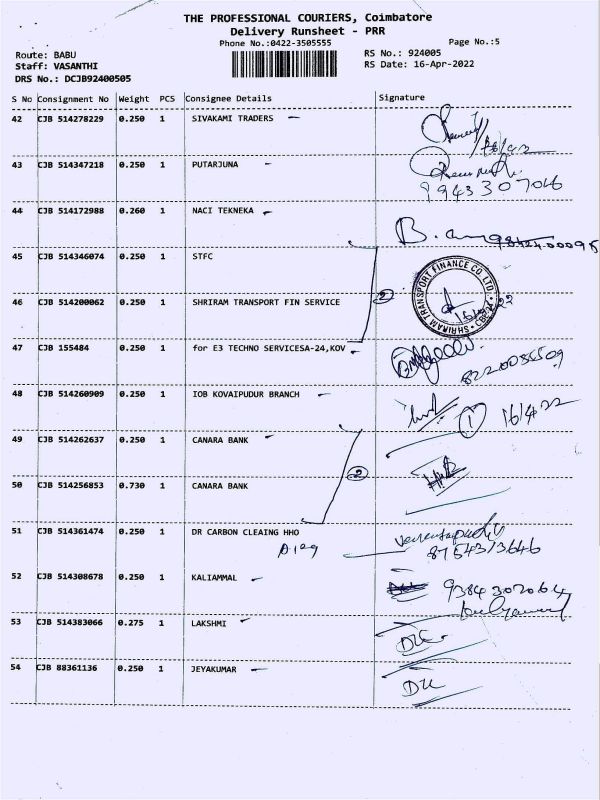 THE PROFESSIONAL COURIERS, Coimbatore
Delivery Runsheet - PRR
Phone No.:0422-3505555
Page No.:5
Route: BABU
RS No.: 924005
Staff: VASANTHI
RS Date: 16-Apr-2022
DRS No.: DCJB92400505
S No Consignment No Weight PCS Consignee Details Signature
42 CJB 514278229 0.250 1 SIVAKAMI TRADERS
43 CJB 514347218 0.250 1 PUTARJUNA
9943307046
44 CJB 514172988 0.260 1 NACI TEKNEKA
45 CJB 514346074 0.250 1 STFC
SHRIRAM TRANSPORT FINANCE CO LTD.
46 CJB 514200062 0.250 1 SHRIRAM TRANSPORT FIN SERVICE 2
47 CJB 155484 0.250 1 for E3 TECHNO SERVICESA-24,KOV
48 CJB 514260909 0.250 1 IOB KOVAIPUDUR BRANCH 1 16/4/22
49 CJB 514262637 0.250 1 CANARA BANK
2
50 CJB 514256853 0.730 1 CANARA BANK
51 CJB 514361474 0.250 1 DR CARBON CLEAING HHO
8754313646
52 CJB 514308678 0.250 1 KALIAMMAL 9384302064
53 CJB 514383066 0.275 1 LAKSHMI
54 CJB 88361136 0.250 1 JEYAKUMAR